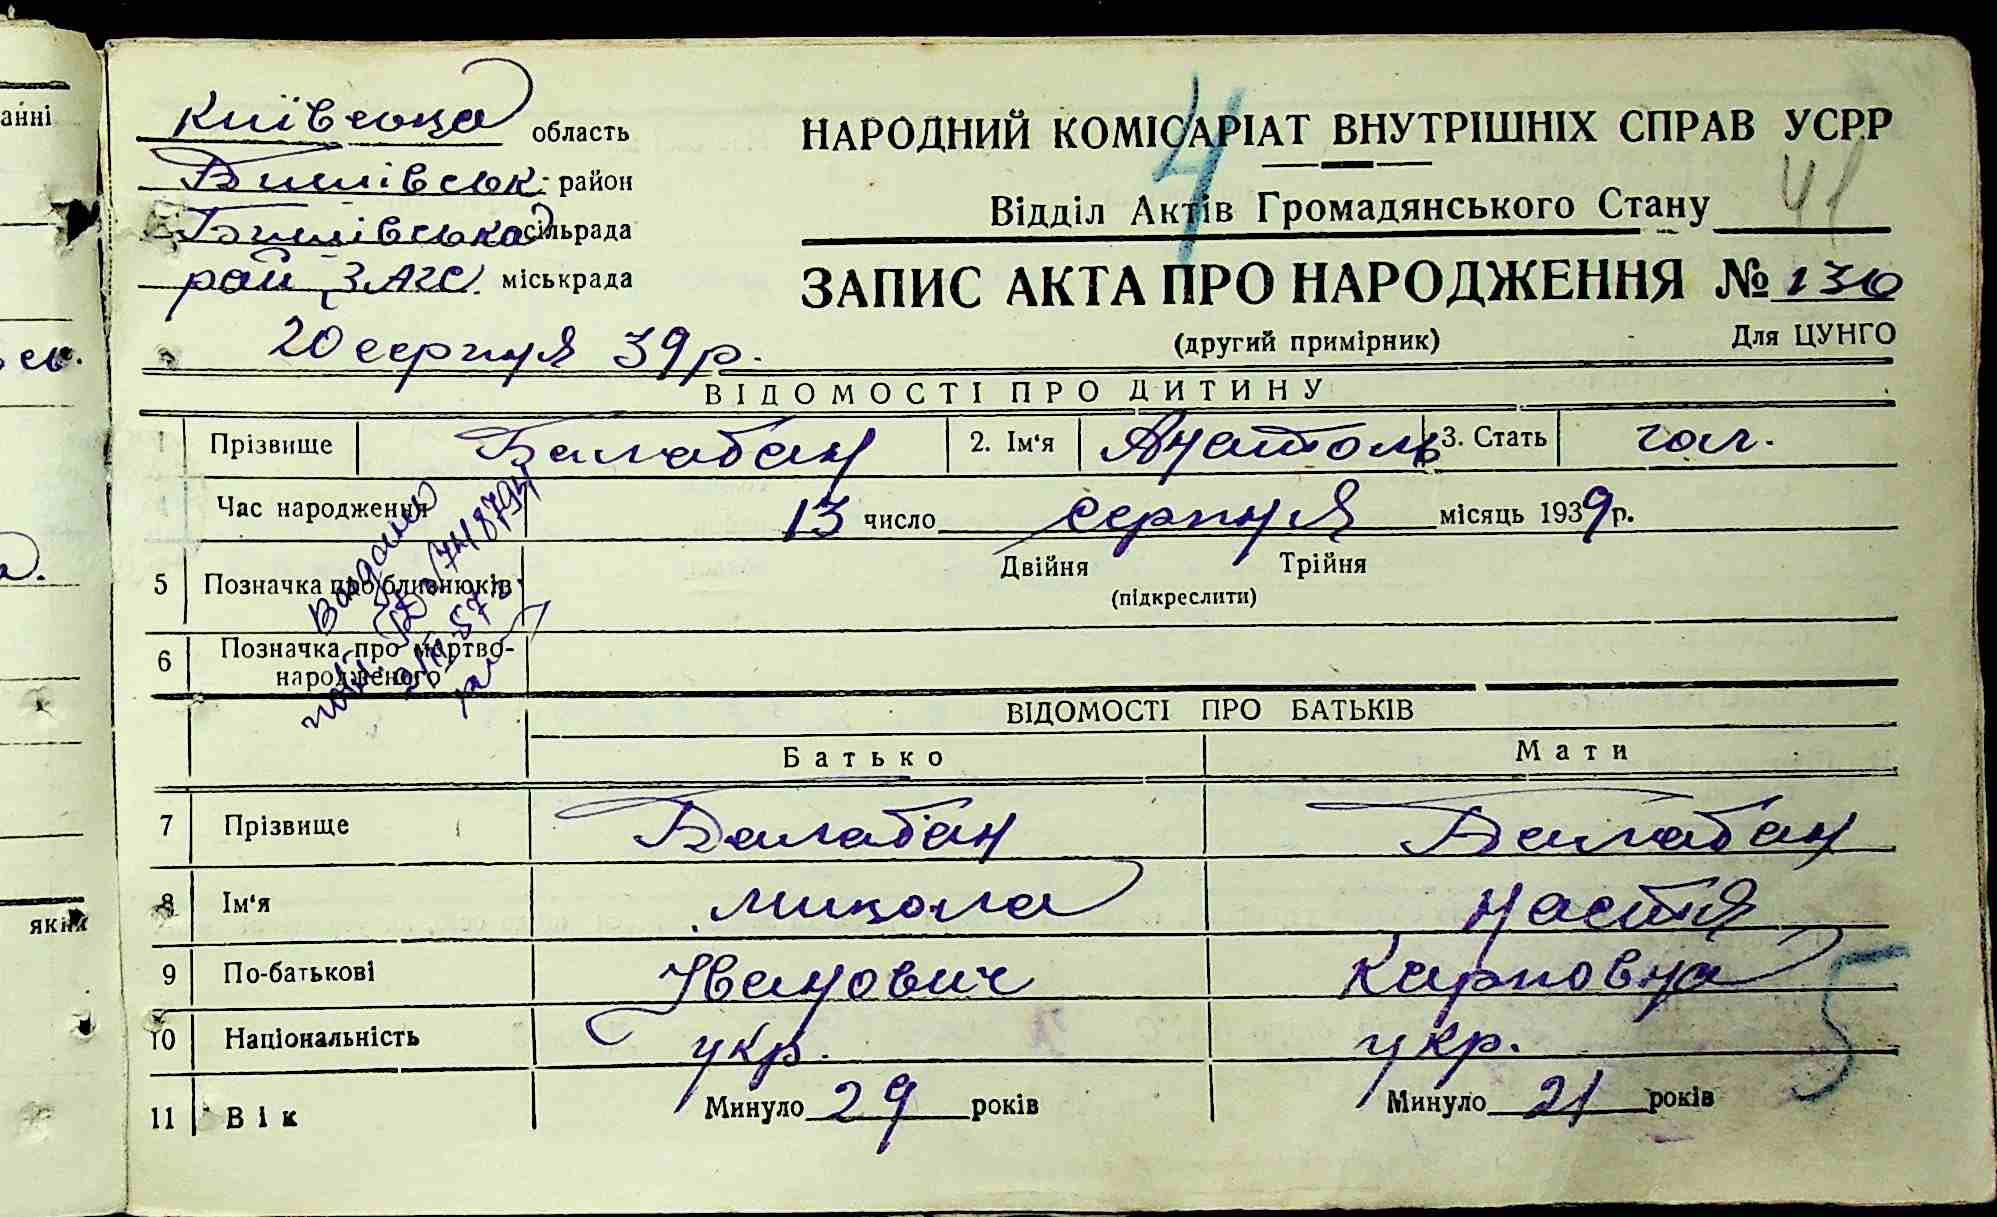 Київська область
район
сільрада
рай ЗАГС. міськрада
20 серпня 39 р.
НАРОДНИЙ КОМІСАРІАТ ВНУТРІШНІХ СПРАВ УСРР
4
41
Відділ Актів Громадянського Стану
ЗАПИС АКТА ПРО НАРОДЖЕННЯ № 130
(другий примірник) Для ЦУНГО
ВІДОМОСТІ ПРО ДИТИНУ
1 Прізвище Балабан 2. Ім'я Анатоль 3. Стать чол.
Час народження 13 число серпня місяць 1939 р.
5 Позначка про близнюків Двійня Трійня
(підкреслити)
6 Позначка про мертво-
народженого
ВІДОМОСТІ ПРО БАТЬКІВ
Батько Мати
7 Прізвище Балабан Балабан
8 Ім'я Микола Настя
9 По-батькові Іванович Карповна
10 Національність укр. укр.
5
11 Вік Минуло 29 років Минуло 21 років
анні
яких